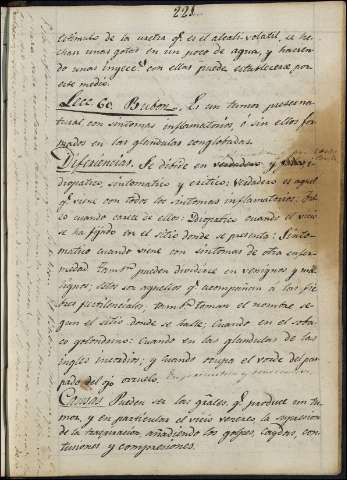 221.
estimulo de la uretra q.e es el alcali volatil, se he-
chan unas gotas en un poco de agua, y hacien-
do unas inyecc.s con ellas puede establecerse por
este medio.
Lecc 60 Bubon. Es un tumor preterna-
tural con sintomas inflamatorios, ó sin ellos for-
mados en las glandulas conglobadas.
Diferencias. Se divide en verdadero y falso i-
diopatico sintomatico y critico: verdadero es aquel
q.e viene con todos los sintomas inflamatorios: Fal-
so cuando carece de ellos: Idiopatico cuando el vicio
se ha fijado en el sitio donde se presenta: Sinto-
matico cuando viene con sintomas de otra enfer-
medad tamb.n pueden dividirse en venignos y ma-
lignos; estos son aquellos q.e acompañan á las fie-
bres pestilenciales: tamb.n toman el nombre se-
gun el sitio donde se halle; Cuando en el soba-
co golondrino: Cuando en las glandulas de las
ingles incordios; y cuando ocupa el vorde del par-
pado del ojo orzuelo.
Causas Pueden ser las grales q.e producen un tu-
mor, y en particular el vicio venereo, la supresion
de la traspiracion, añadiendo los golpes, caydas, con-
tusiones y compresiones.